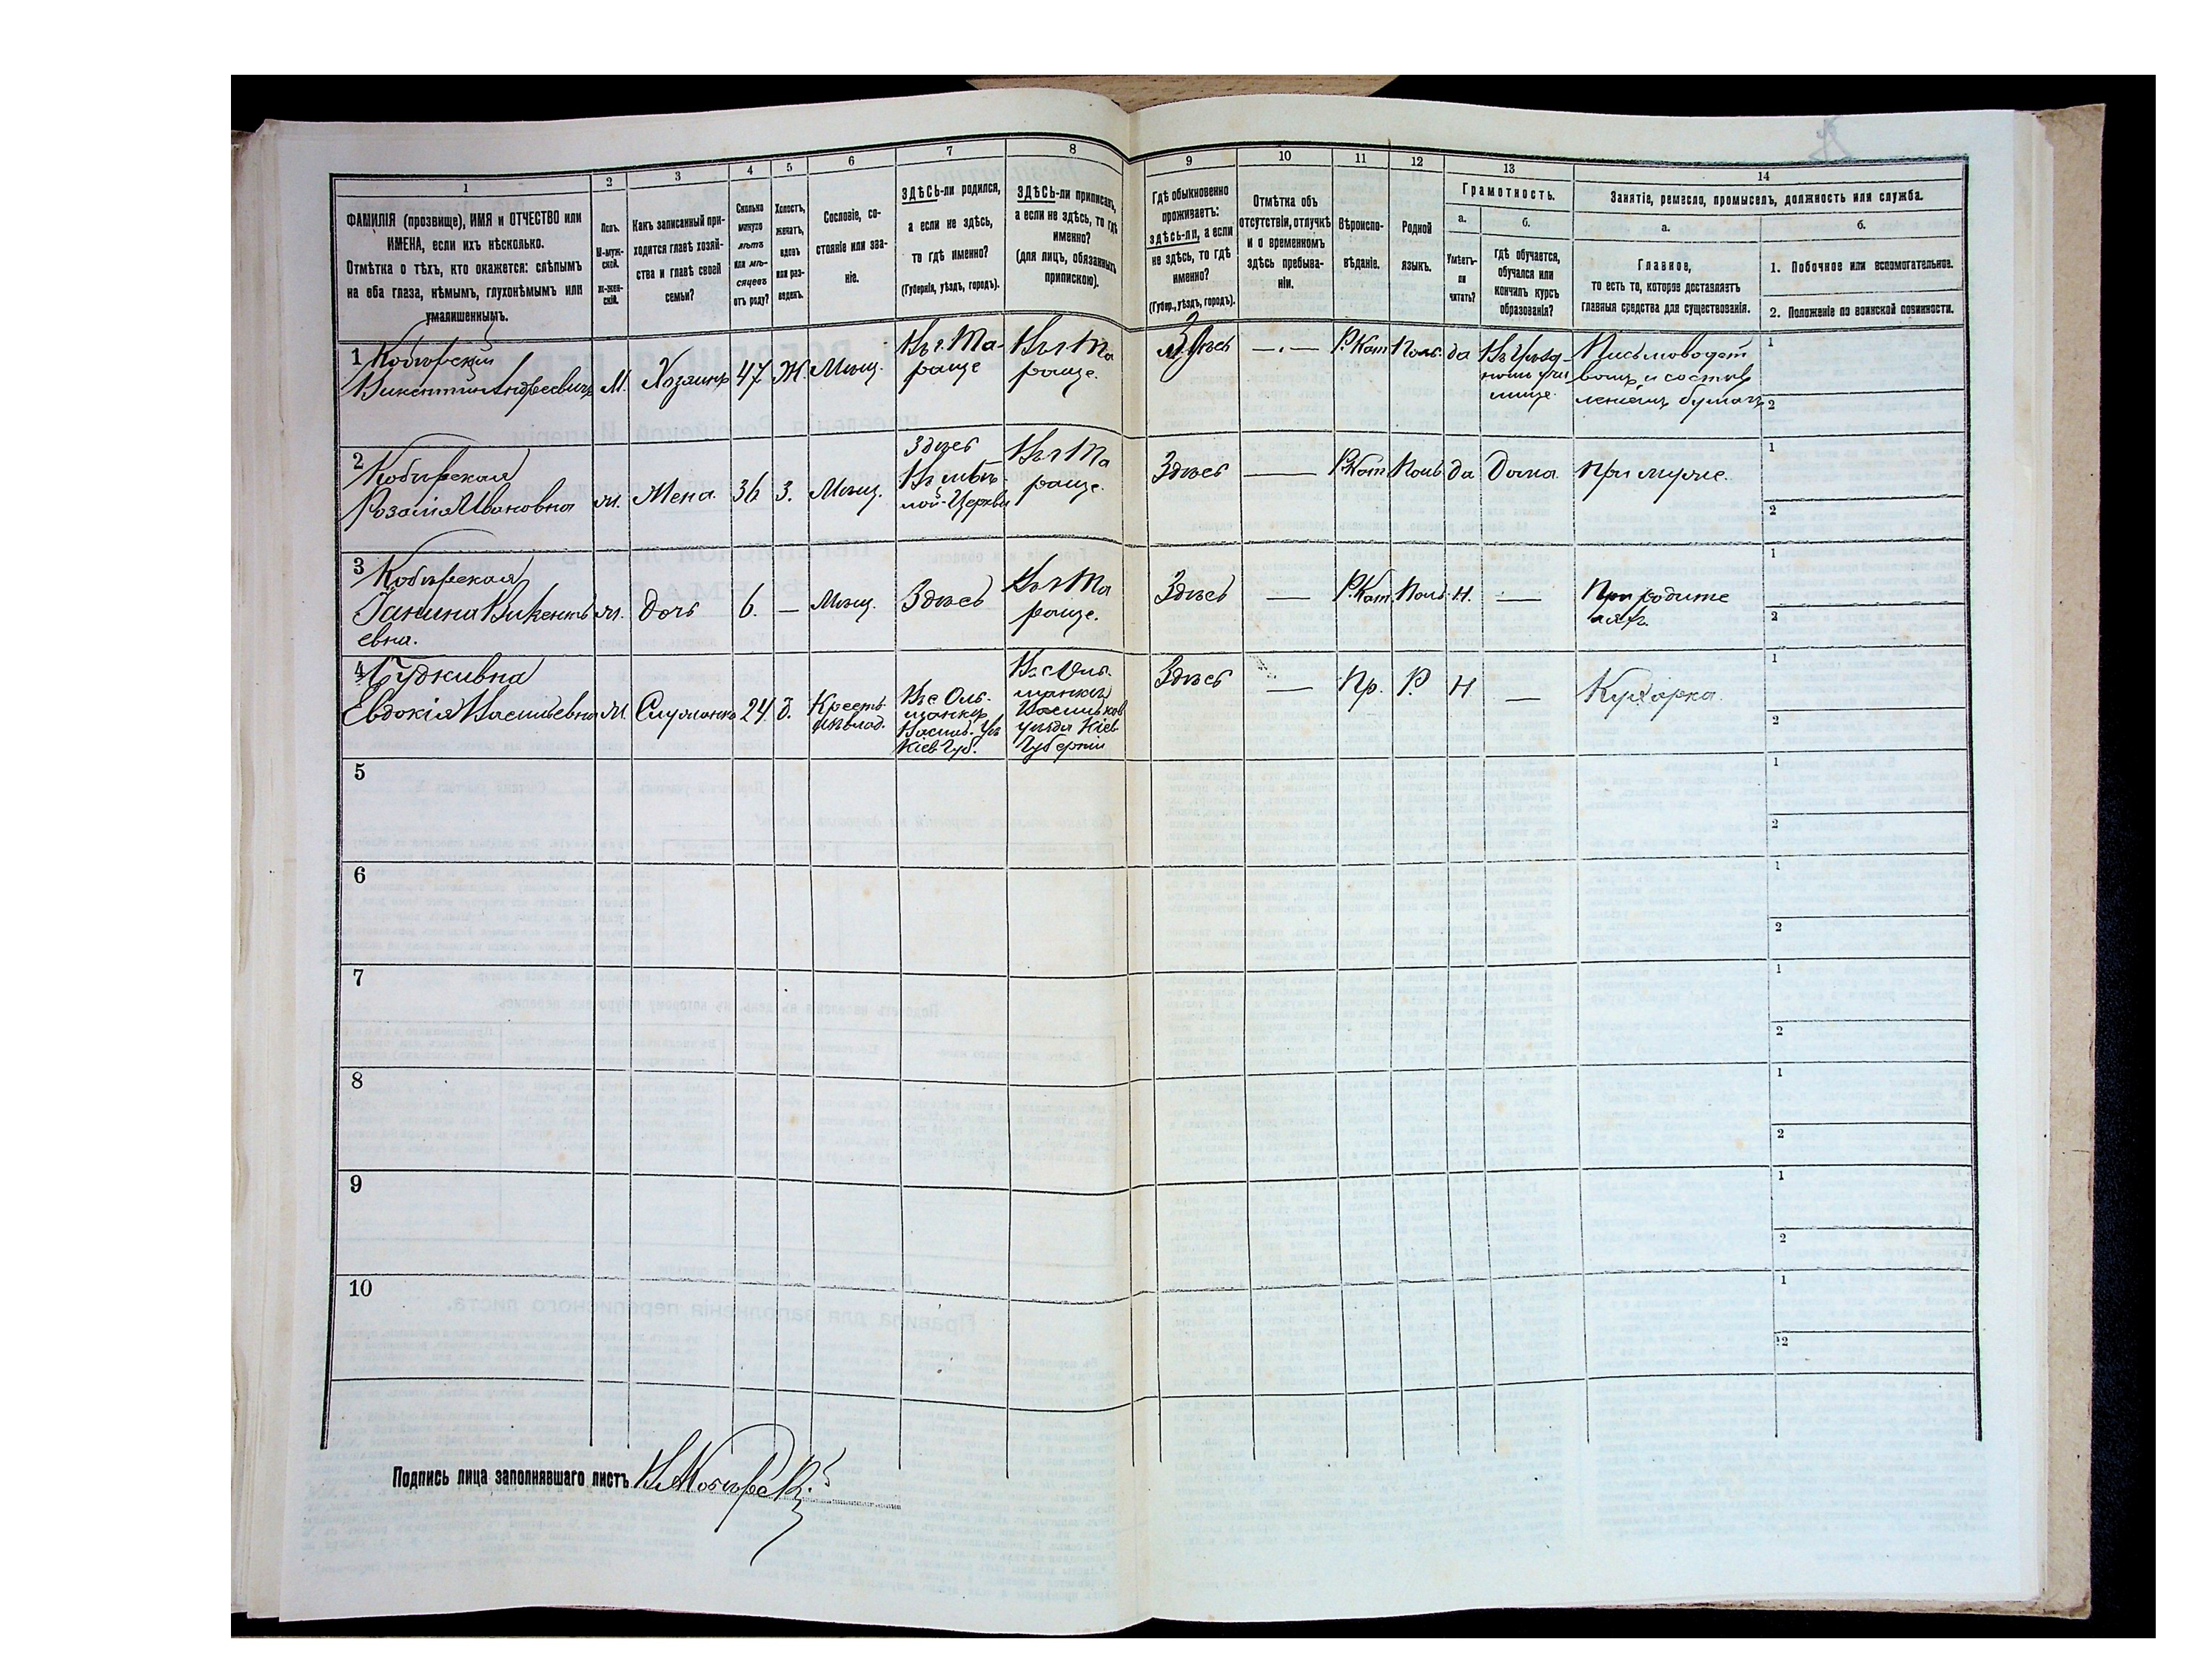 1 2 3 4 5 6 7 8 9 10 11 12 13 14
ФАМИЛІЯ (прозвище), ИМЯ и ОТЧЕСТВО или
ИМЕНА, если ихъ нѣсколько.
Отмѣтка о тѣхъ, кто окажется: слѣпымъ
на оба глаза, нѣмымъ, глухонѣмымъ или
умалишеннымъ.
Полъ.
М-муж-
ской.
Ж-жен-
скій.
Какъ записанный при-
ходится главѣ хозяй-
ства и главѣ своей
семьи?
Сколько
минуло
лѣтъ
или мѣ-
сяцевъ
отъ роду?
Холостъ,
женатъ,
вдовъ
или раз-
веденъ.
Сословіе, со-
стояніе или зва-
ніе.
ЗДѢСЬ-ли родился,
а если не здѣсь,
то гдѣ именно?
(Губернія, уѣздъ, городъ).
ЗДѢСЬ-ли приписанъ,
а если не здѣсь, то гдѣ
именно?
(для лицъ, обязанныхъ
припискою).
Гдѣ обыкновенно
проживаетъ:
здѣсь-ли, а если
не здѣсь, то гдѣ
именно?
(Губер., уѣздъ, городъ).
Отмѣтка объ
отсутствіи, отлучкѣ
и о временномъ
здѣсь пребыва-
ніи.
Вѣроиспо-
вѣданіе.
Родной
языкъ.
Грамотность.
а. б.
Умѣетъ-
ли
читать?
гдѣ обучается,
обучался или
кончилъ курсъ
образованія?
Занятіе, ремесло, промыселъ, должность или служба.
а. б.
Главное,
то есть то, которое доставляетъ
главныя средства для существованія.
1. Побочное или вспомогательное.
2. Положеніе по воинской повинности.
1
Викентій Андреевичъ
М.
Хозяинъ
47
Ж.
Мѣщ.
Въ г. Та-
ращѣ
Въ г Та
ращѣ.
Здѣсь
—.—
Р. Кат
Поль.
да
Въ Уѣзд-
номъ учи
лищѣ.
бумагъ
1
2
2
Розалія Ивановна
Жена
36
З.
Мѣщ.
Здѣсь
Въ г Та
ращѣ.
Здѣсь
—
Р. Кат
Поль
да
Дома.
При мужѣ.
1
2
3
Янина Викенть
евна.
Дочь
6.
—
Мѣщ.
Здѣсь
Въ г Та
ращѣ.
Здѣсь
—
Р. Кат.
Поль
Н.
—
При родите
ляхъ.
1
2
4
Евдокія Васильевна
Служанка
24
д.
Кресть.
Въ с Оль-
шанкѣ
Васильк. Уѣ
Кіев Губ.
Въ с Оль-
шанкѣ
Васильков
уѣзда Кіев
Губерніи
Здѣсь
—
Пр.
Р.
Н
—
Кухарка.
1
2
5
1
2
6
1
2
7
1
2
8
1
2
9
1
2
10
1
2
Подпись лица заполнявшаго листъ